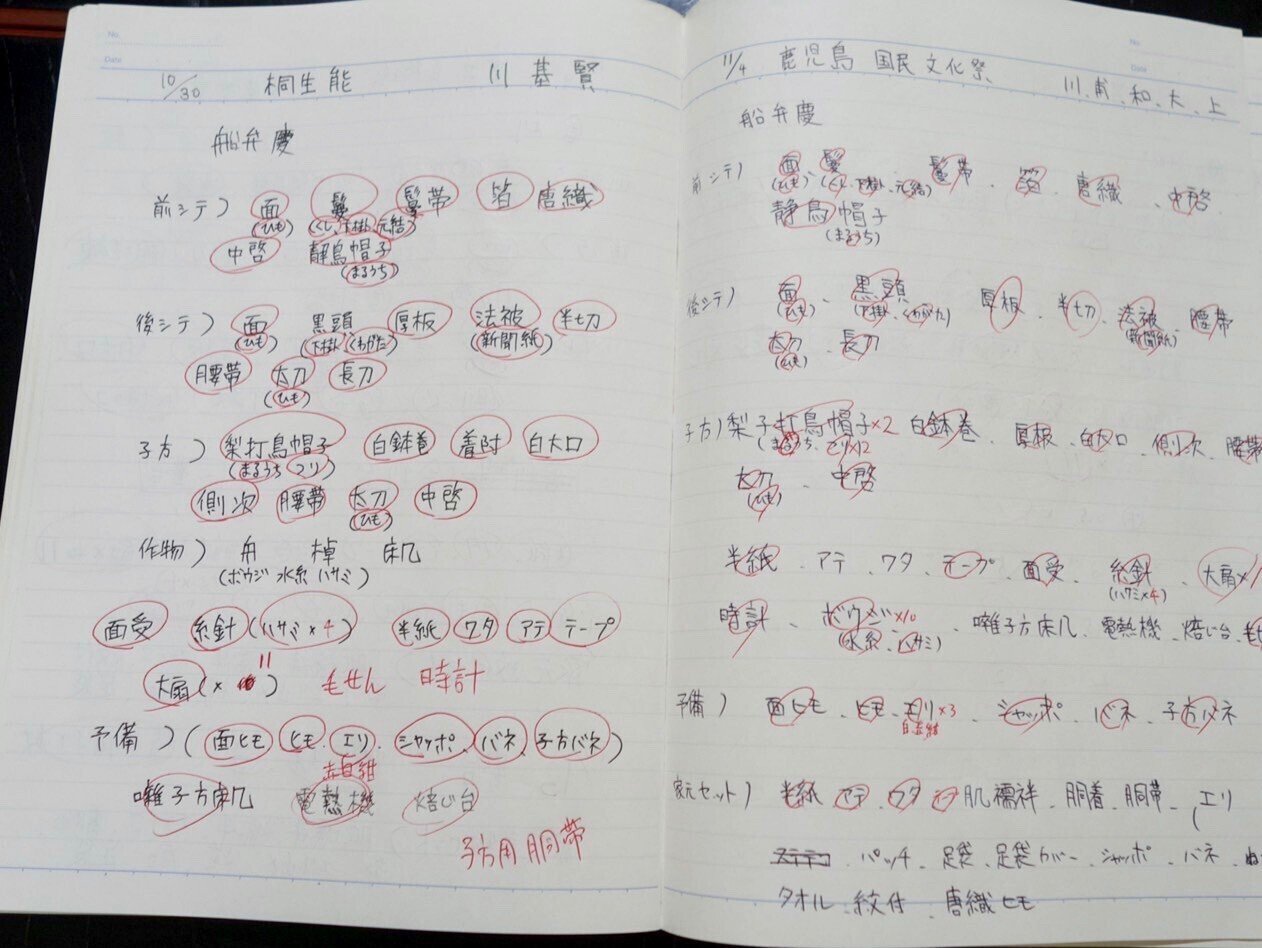 No.
Date
10/30 桐生能 川 基 賢
船弁慶
前シテ) 面 鬘 鬘帯 箔 唐織
(ひも) (くし、下掛、元結)
中啓 静烏帽子
(まるうち)
後シテ) 面 黒頭 厚板 法被 半切
(ひも) (下掛、くわがた) (新聞紙)
腰帯 太刀 長刀
(ひも)
子方) 梨打烏帽子 白鉢巻 着附 白大口
(まるうち つり)
側次 腰帯 太刀 中啓
(ひも)
作物) 舟 棹 床几
(ボウジ 水糸 ハサミ)
面受 糸針(ハサミ×4) 半紙 ワタ アテ テープ
大扇(× 11) 毛せん 時計
予備)(面ヒモ ヒモ、エリ、シャッポ、バネ、子方バネ)
赤白紺
囃子方床几 電熱機 焙じ台
子方用 胴帯
No.
Date
11/4 鹿児島 国民文化祭
川、甫、和、大、上
船弁慶
前シテ) 面、鬘、鬘帯、箔、唐織、中啓
(ひも) (くし、下掛、元結)
静烏帽子
(まるうち)
後シテ) 面、黒頭 厚板、半切、法被、腰帯
(ひも) (下掛、くわがた) (新聞紙)
太刀、長刀
(ひも)
子方) 梨子打烏帽子×2 白鉢巻、厚板、白大口、側次、腰帯
(まるうち、つり×2)
太刀、中啓
(ひも)
半紙、アテ、ワタ、テープ、面受、糸針、大扇×
(ハサミ×4)
時計、ボウジ×10、囃子方床几、電熱機、焙じ台、毛
(水糸、ハサミ)
予備) 面ヒモ、ヒモ、エリ×3、シャッポ、バネ、子方バネ
白赤紺
家元セット) 半紙、アテ、ワタ、肌襦袢、胴着、胴帯、エリ
ステテコ、パッチ、足袋、足袋カバー、シャッポ、バネ、
タオル、紋付、唐織ヒモ